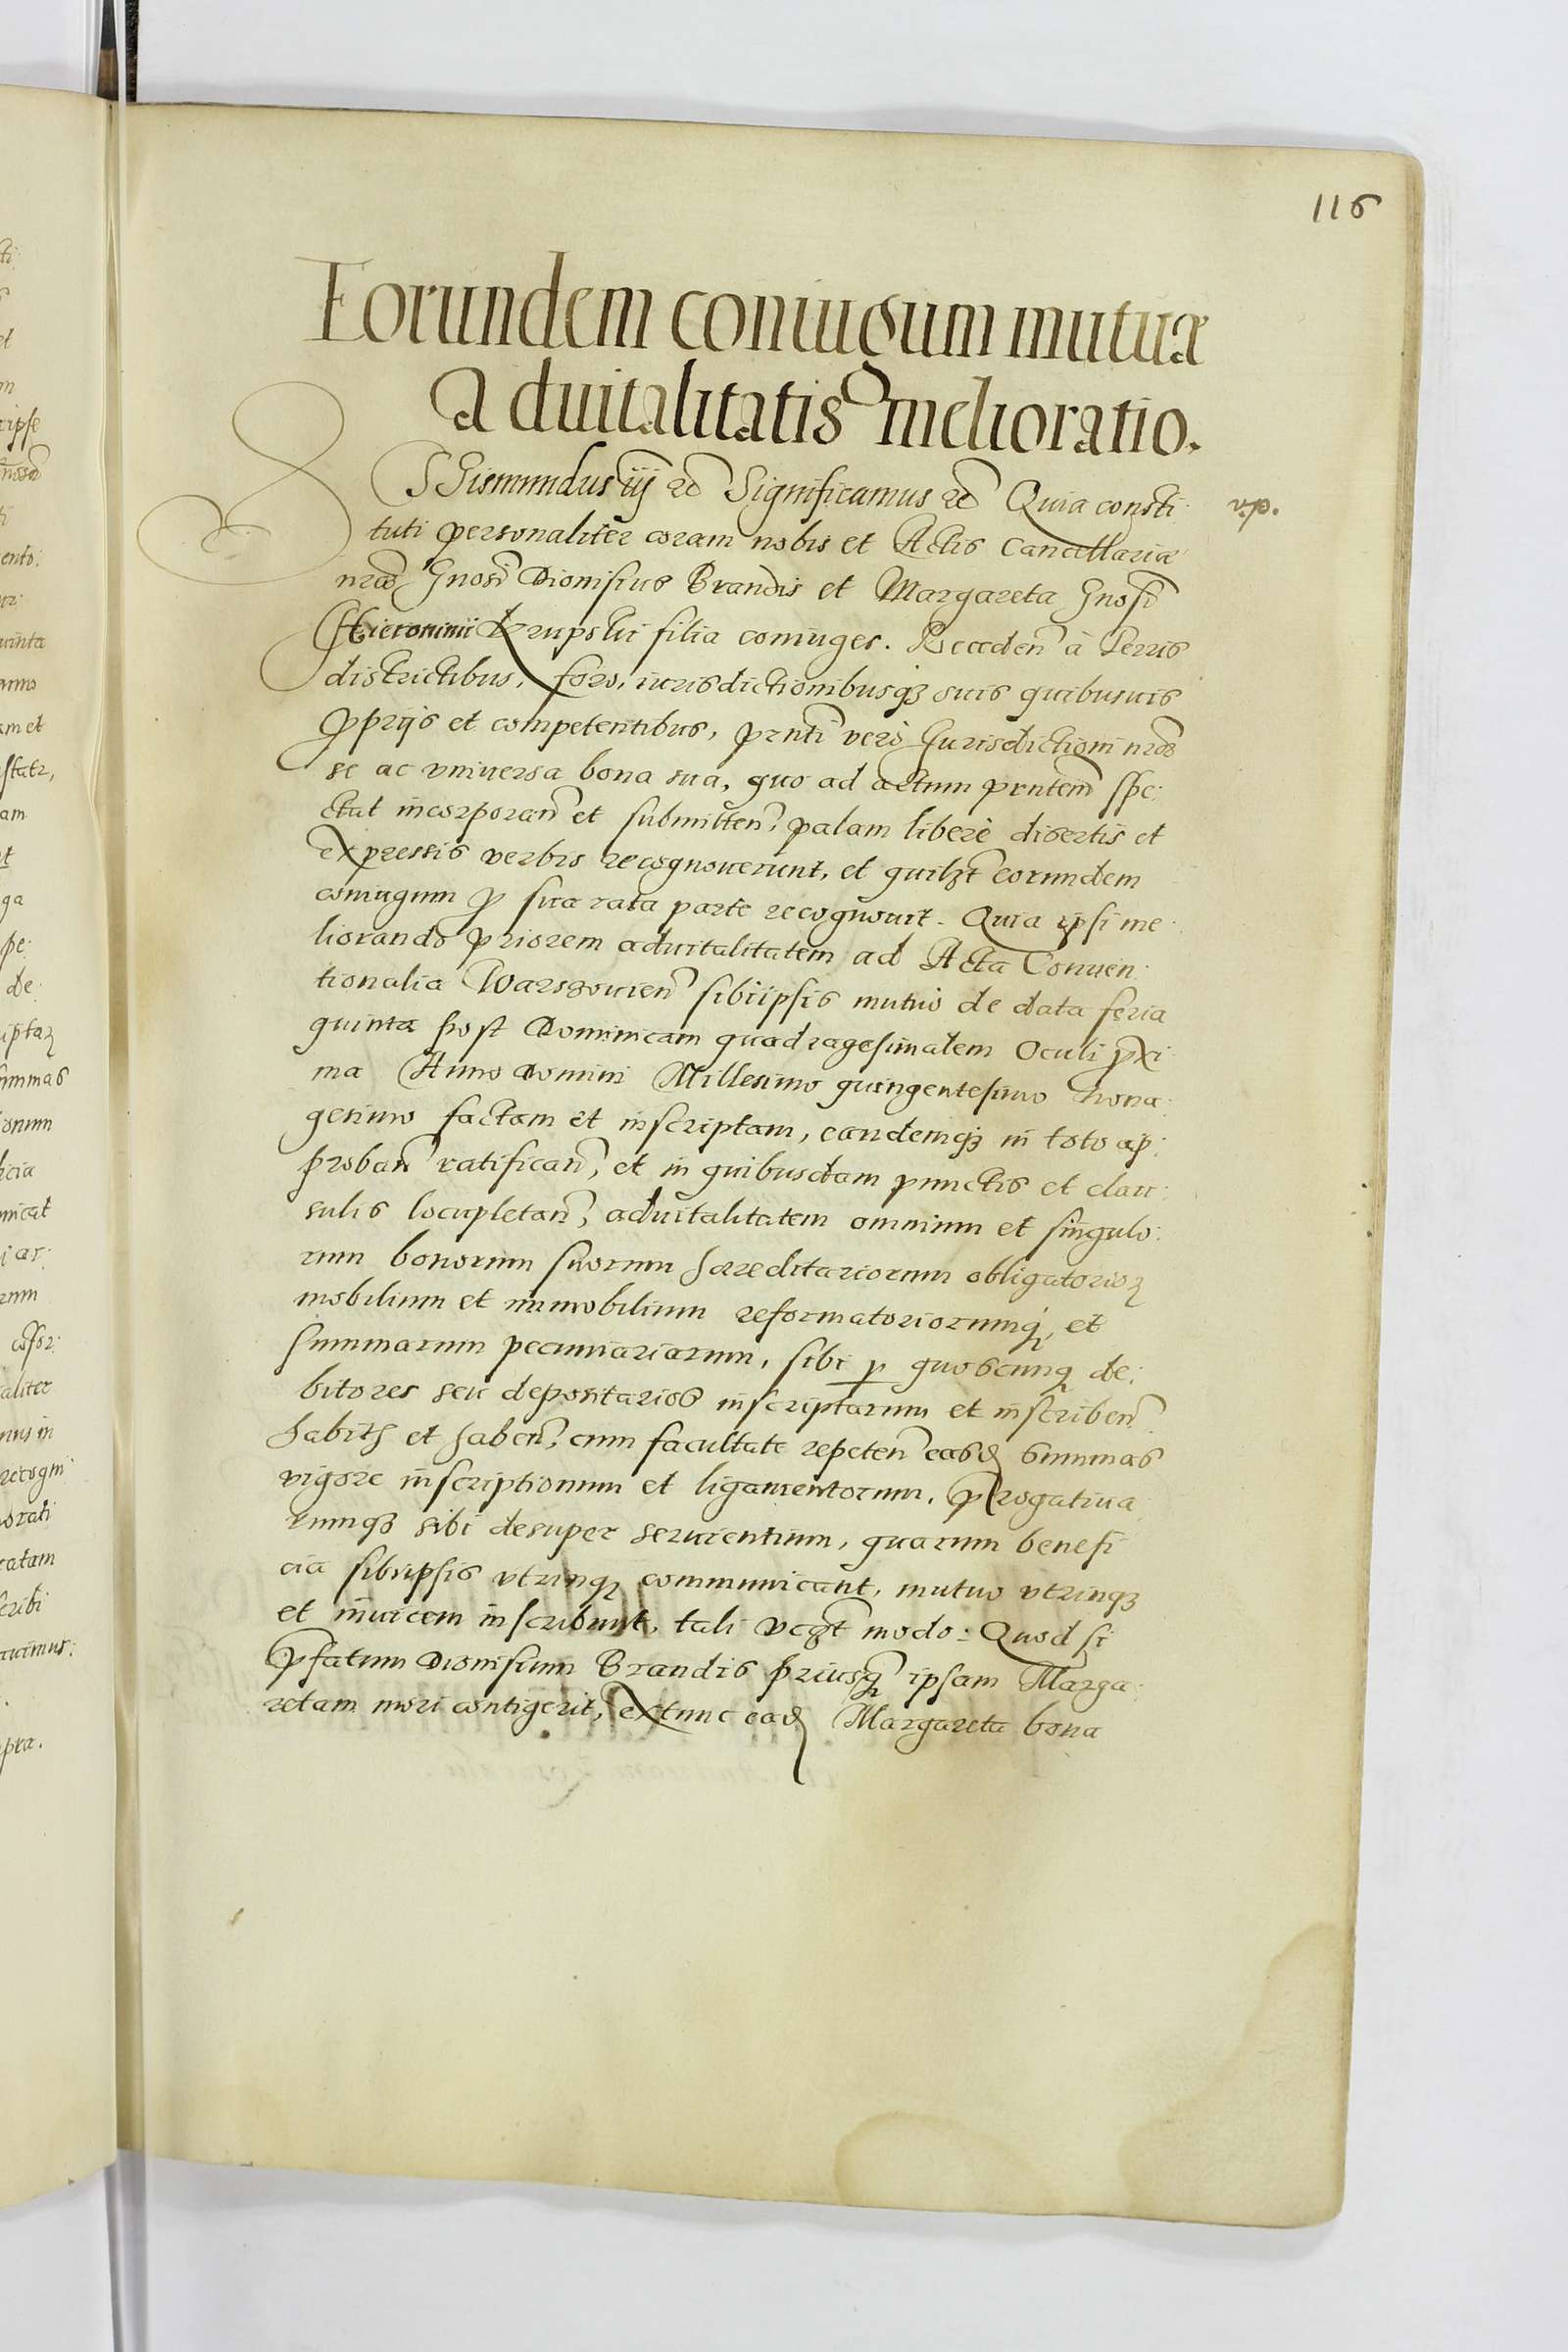 116
Eorundem coniugum mutua
Advitalitatis melioratio.
SGismundus iij rc Significamus rc Quia consti
tuti personaliter coram nobis et Actis Cancellariæ
nrae Gnosi Dionisius Brandis et Margareta Gnosi
Hieronimi Krupski filia coniuges. Receden à Terris
districtibus, foro, iurisdictionibusq3 suis quibusuis
proprijs et competentibus, prnti verò Jurisdictioni nrae
se ac vniuersa bona sua, quo ad actum prntem spe:
ctat incorporan et submitten, palam liberè disertis et
expressis verbis recognouerunt, et quilzt eorundem
coniugum pro sua rata parte recognouit. Quia ipsi me
liorando priorem aduitalitatem ad Acta Conuen
tionalia Warszouien sibiipsis mutuò de data feria
quinta post Dominicam quadragesimalem Oculi proxi
ma Anno Domini Millesimo quingentesimo Nona:
gesimo factam et inscriptam, eandemq3 in toto ap:
proban ratifican, et in quibusdam punctis et clau:
sulis locupletan, aduitalitatem omnium et singulo:
rum bonorum suorum hæreditariorum obligatorior
mobilium et immobilium reformatoriorumq, et
summarum pecuniariarum, sibi p quoscunq de:
bitores seu depositarios inscriptarum et inscriben
habith et haben, cum facultate repeten easd summas
vigore inscriptionum et ligamentorum, prerogatiua
rumq3 sibi desuper seruientium, quarum benefi
cia sibiipsis vtrinq communicant, mutuo vtrinq3
et inuicem inscribunt, tali vczt modo: Quod si
prefatum Dionisium Brandis priusq ipsam Marga
retam mori contigerit, extunc ead Margareta bona